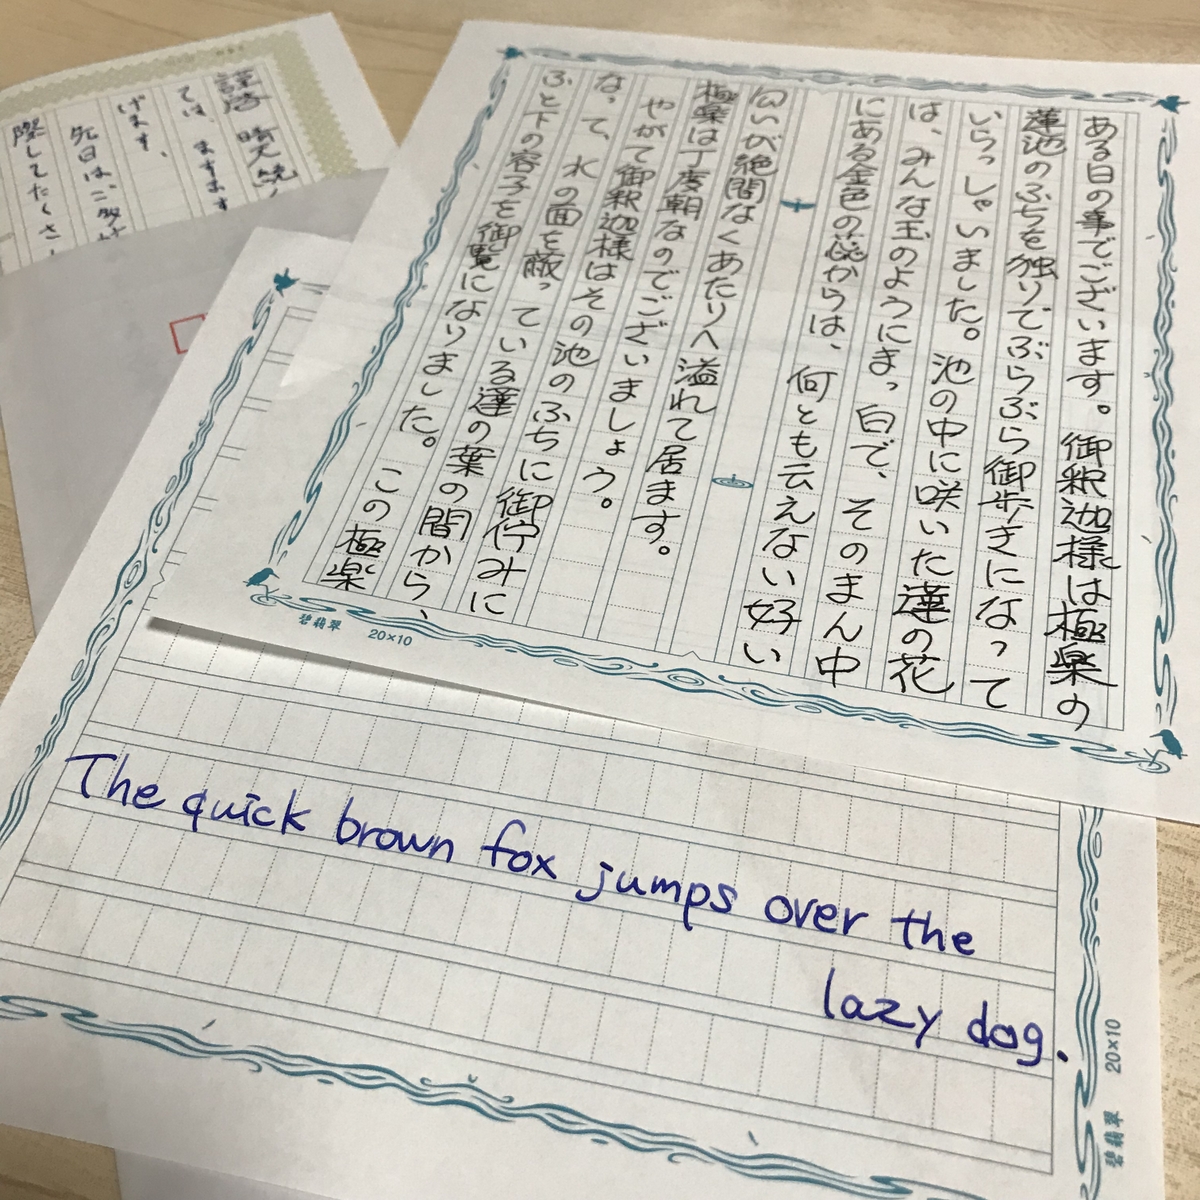 ある日の事でございます。御釈迦様は極楽の
蓮池のふちを独りでぶらぶら御歩きになって
いらっしゃいました。池の中に咲いた蓮の花
は、みんな玉のようにまっ白で、そのまん中
にある金色の蕊からは、何とも云えない好い
匂いが絶間なくあたりへ溢れて居ます。
極楽は丁度朝なのでございましょう。
やがて御釈迦様はその池のふちに御佇みに
なって、水の面を蔽っている蓮の葉の間から、
ふと下の容子を御覧になりました。この極楽
碧翡翠 20×10
謹啓 晴天続
ては、ますます
げます。
先日は、ご多忙
際してたくさ
The quick brown fox jumps over the
lazy dog.
碧翡翠 20×10